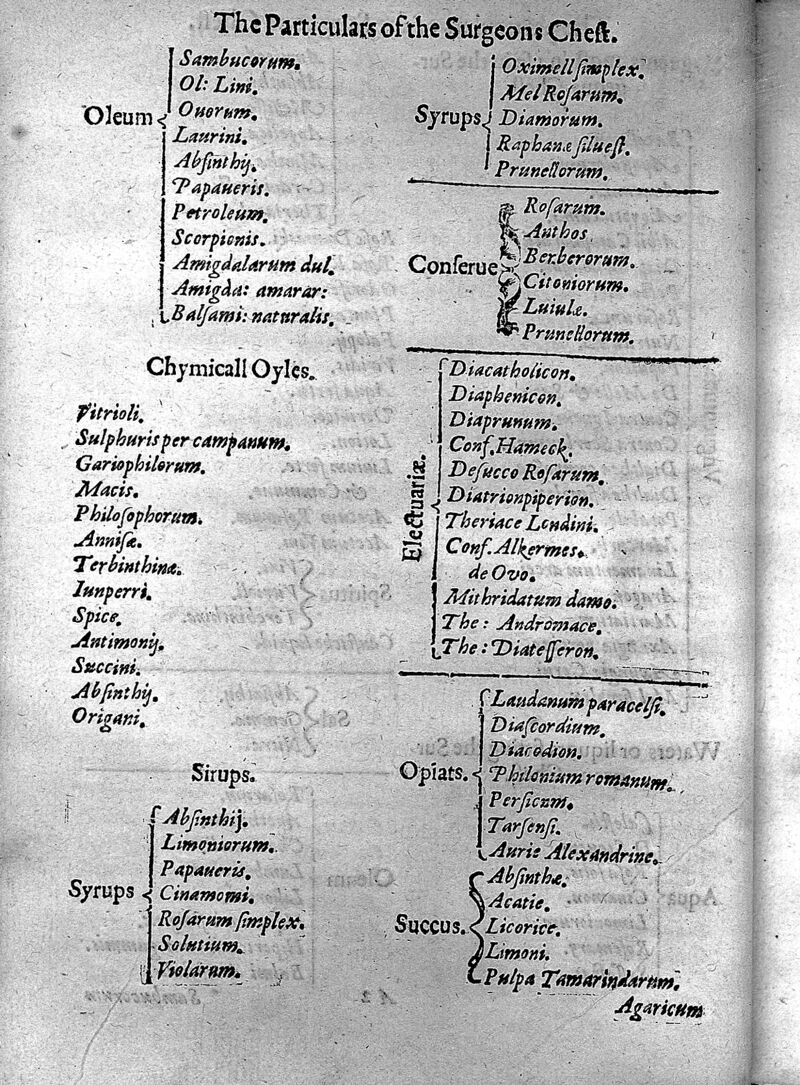 The Particulars of the Surgeons Cheſt.
Oleum
Sambucorum.
Ol: Lini.
Ouorum.
Laurini.
Abſinthij.
Papaueris.
Petroleum.
Scorpionis.
Amigdalarum dul.
Amigda: amarar:
Balſami: naturalis.
Chymicall Oyles.
Vitrioli.
Sulphuris per campanum.
Gariophilorum.
Macis.
Philoſophorum.
Anniſæ.
Terbinthinæ.
Iunperri.
Spice.
Antimonij.
Succini.
Abſinthij.
Origani.
Sirups.
Syrups
Abſinthij.
Limoniorum.
Papaueris.
Cinamomi.
Roſarum ſimplex.
Solutium.
Violarum.
Syrups
Oximell ſimplex.
Mel Roſarum.
Diamorum.
Raphanæ ſilueſt.
Prunellorum.
Conſerue
Roſarum.
Authos
Berberorum.
Citoniorum.
Luiulæ.
Prunellorum.
Electuariæ.
Diacatholicon.
Diaphenicon.
Diaprunum.
Conf. Hameck.
De ſucco Roſarum.
Diatrionpiperion.
Theriace Londini.
Conf. Alkermes.
de Ovo.
Mithridatum damo.
The: Andromace.
The: Diateſſeron.
Opiats.
Laudanum paracelſi.
Diaſcordium.
Diacodion.
Philonium romanum.
Perſicum.
Tarſenſi.
Aurie Alexandrine.
Succus.
Abſinthæ.
Acatie.
Licorice.
Limoni.
Pulpa Tamarindarum.
Agaricum